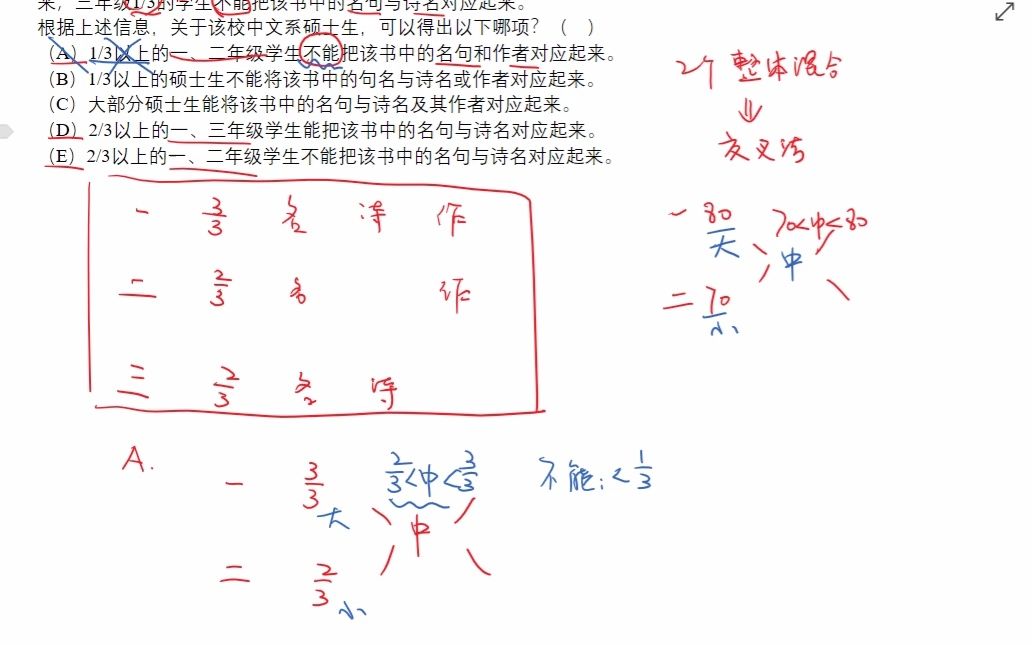 来，三年级1/3的学生不能把该书中的名句与诗名对应起来。
根据上述信息，关于该校中文系硕士生，可以得出以下哪项？（ ）
（A）1/3以上的一、二年级学生不能把该书中的名句和作者对应起来。
（B）1/3以上的硕士生不能将该书中的句名与诗名或作者对应起来。
（C）大部分硕士生能将该书中的名句与诗名及其作者对应起来。
（D）2/3以上的一、三年级学生能把该书中的名句与诗名对应起来。
（E）2/3以上的一、二年级学生不能把该书中的名句与诗名对应起来。
2个整体混合
⇓
交叉法
一 3/3 名 诗 作
二 2/3 名 作
三 2/3 名 诗
一 80 70<中<80
大 中
二 70
小
A.
一 3/3 2/3<中<3/3 不能:<1/3
大 中
二 2/3
小